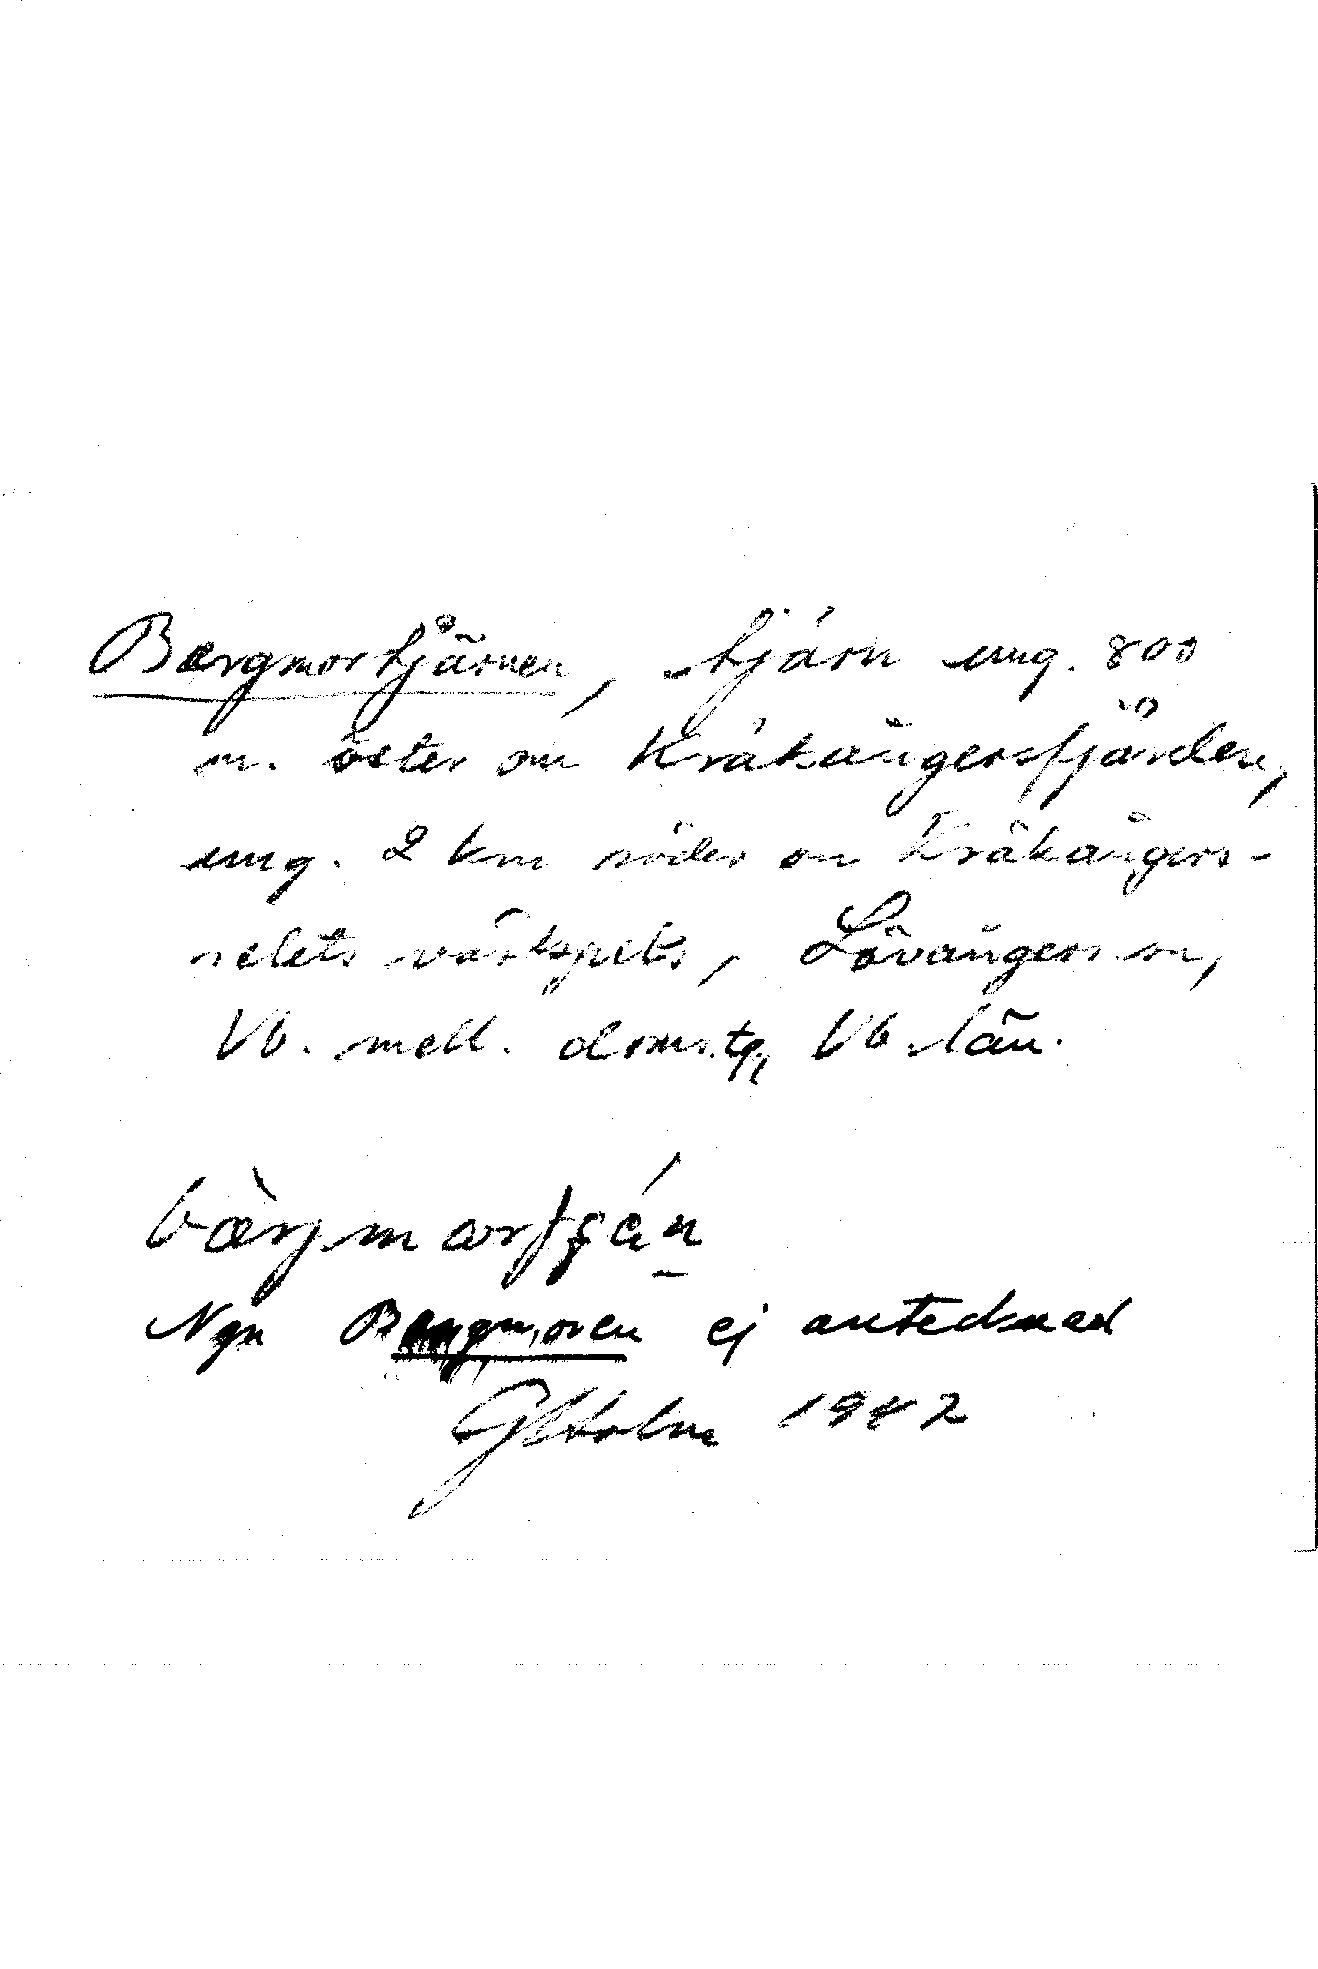 Bergmortjärnen, tjärn ung. 800
m. öster om Kråkångersfjärden,
ung. 2 km söder om Kråkångers-
selets västspets, Lövångers sn,
Vb. mell. doms.tg, Vb. län.
Ngn Bergmoren ej antecknad
GHolm 1942